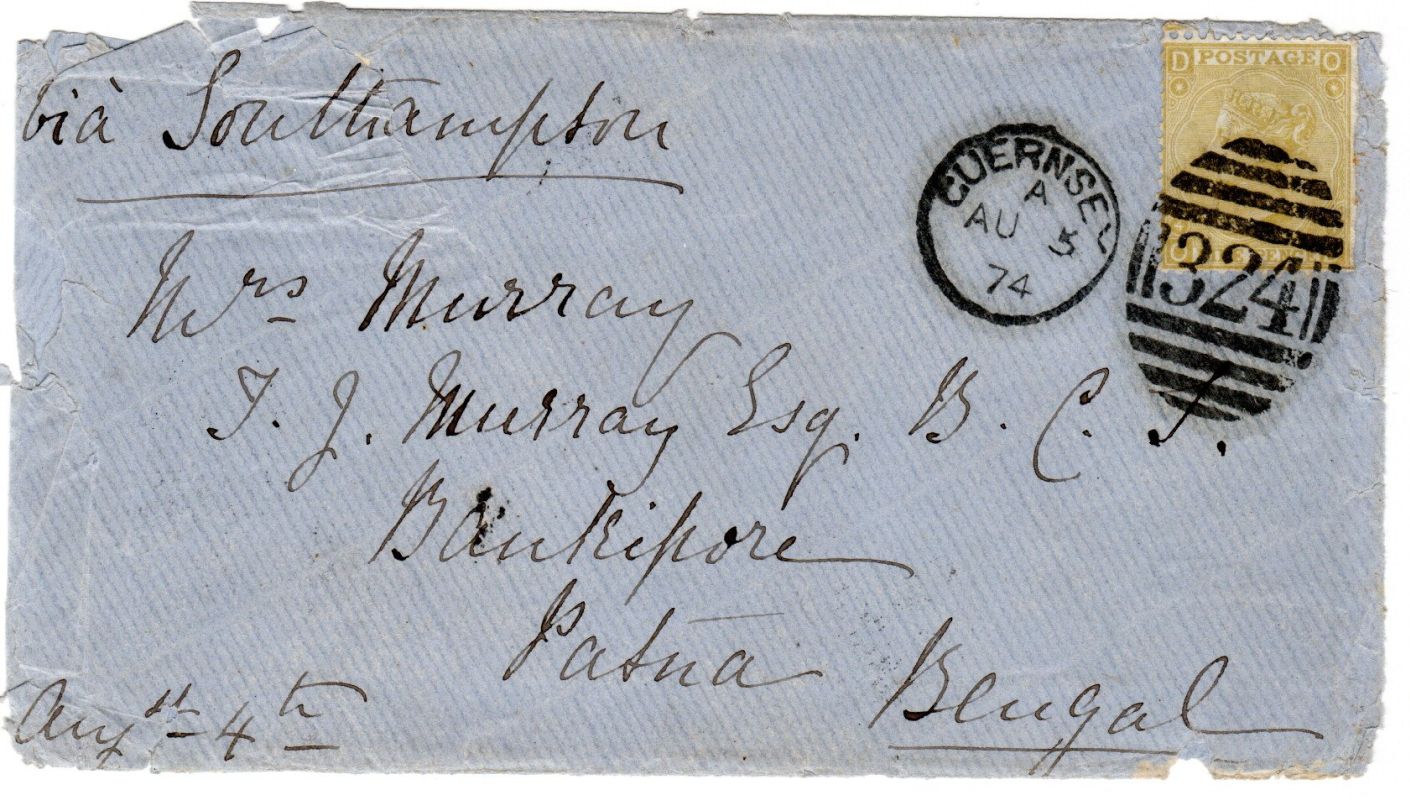 via Southampton
D POSTAGE O
GUERNSEY
A
AU 5
74
324
Mrs Murray
T. J. Murray Esq. B. C. S.
Bankipore
Patna
Bengal
Augst 4th